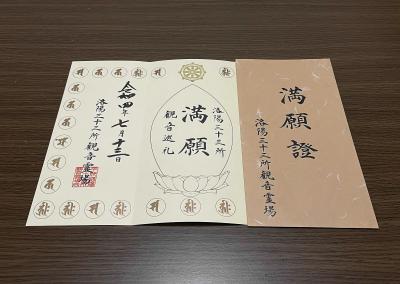 満願證
洛陽三十三所観音霊場
洛陽三十三所
満願
観音巡礼
令和四年七月十三日
洛陽三十三所観音霊場